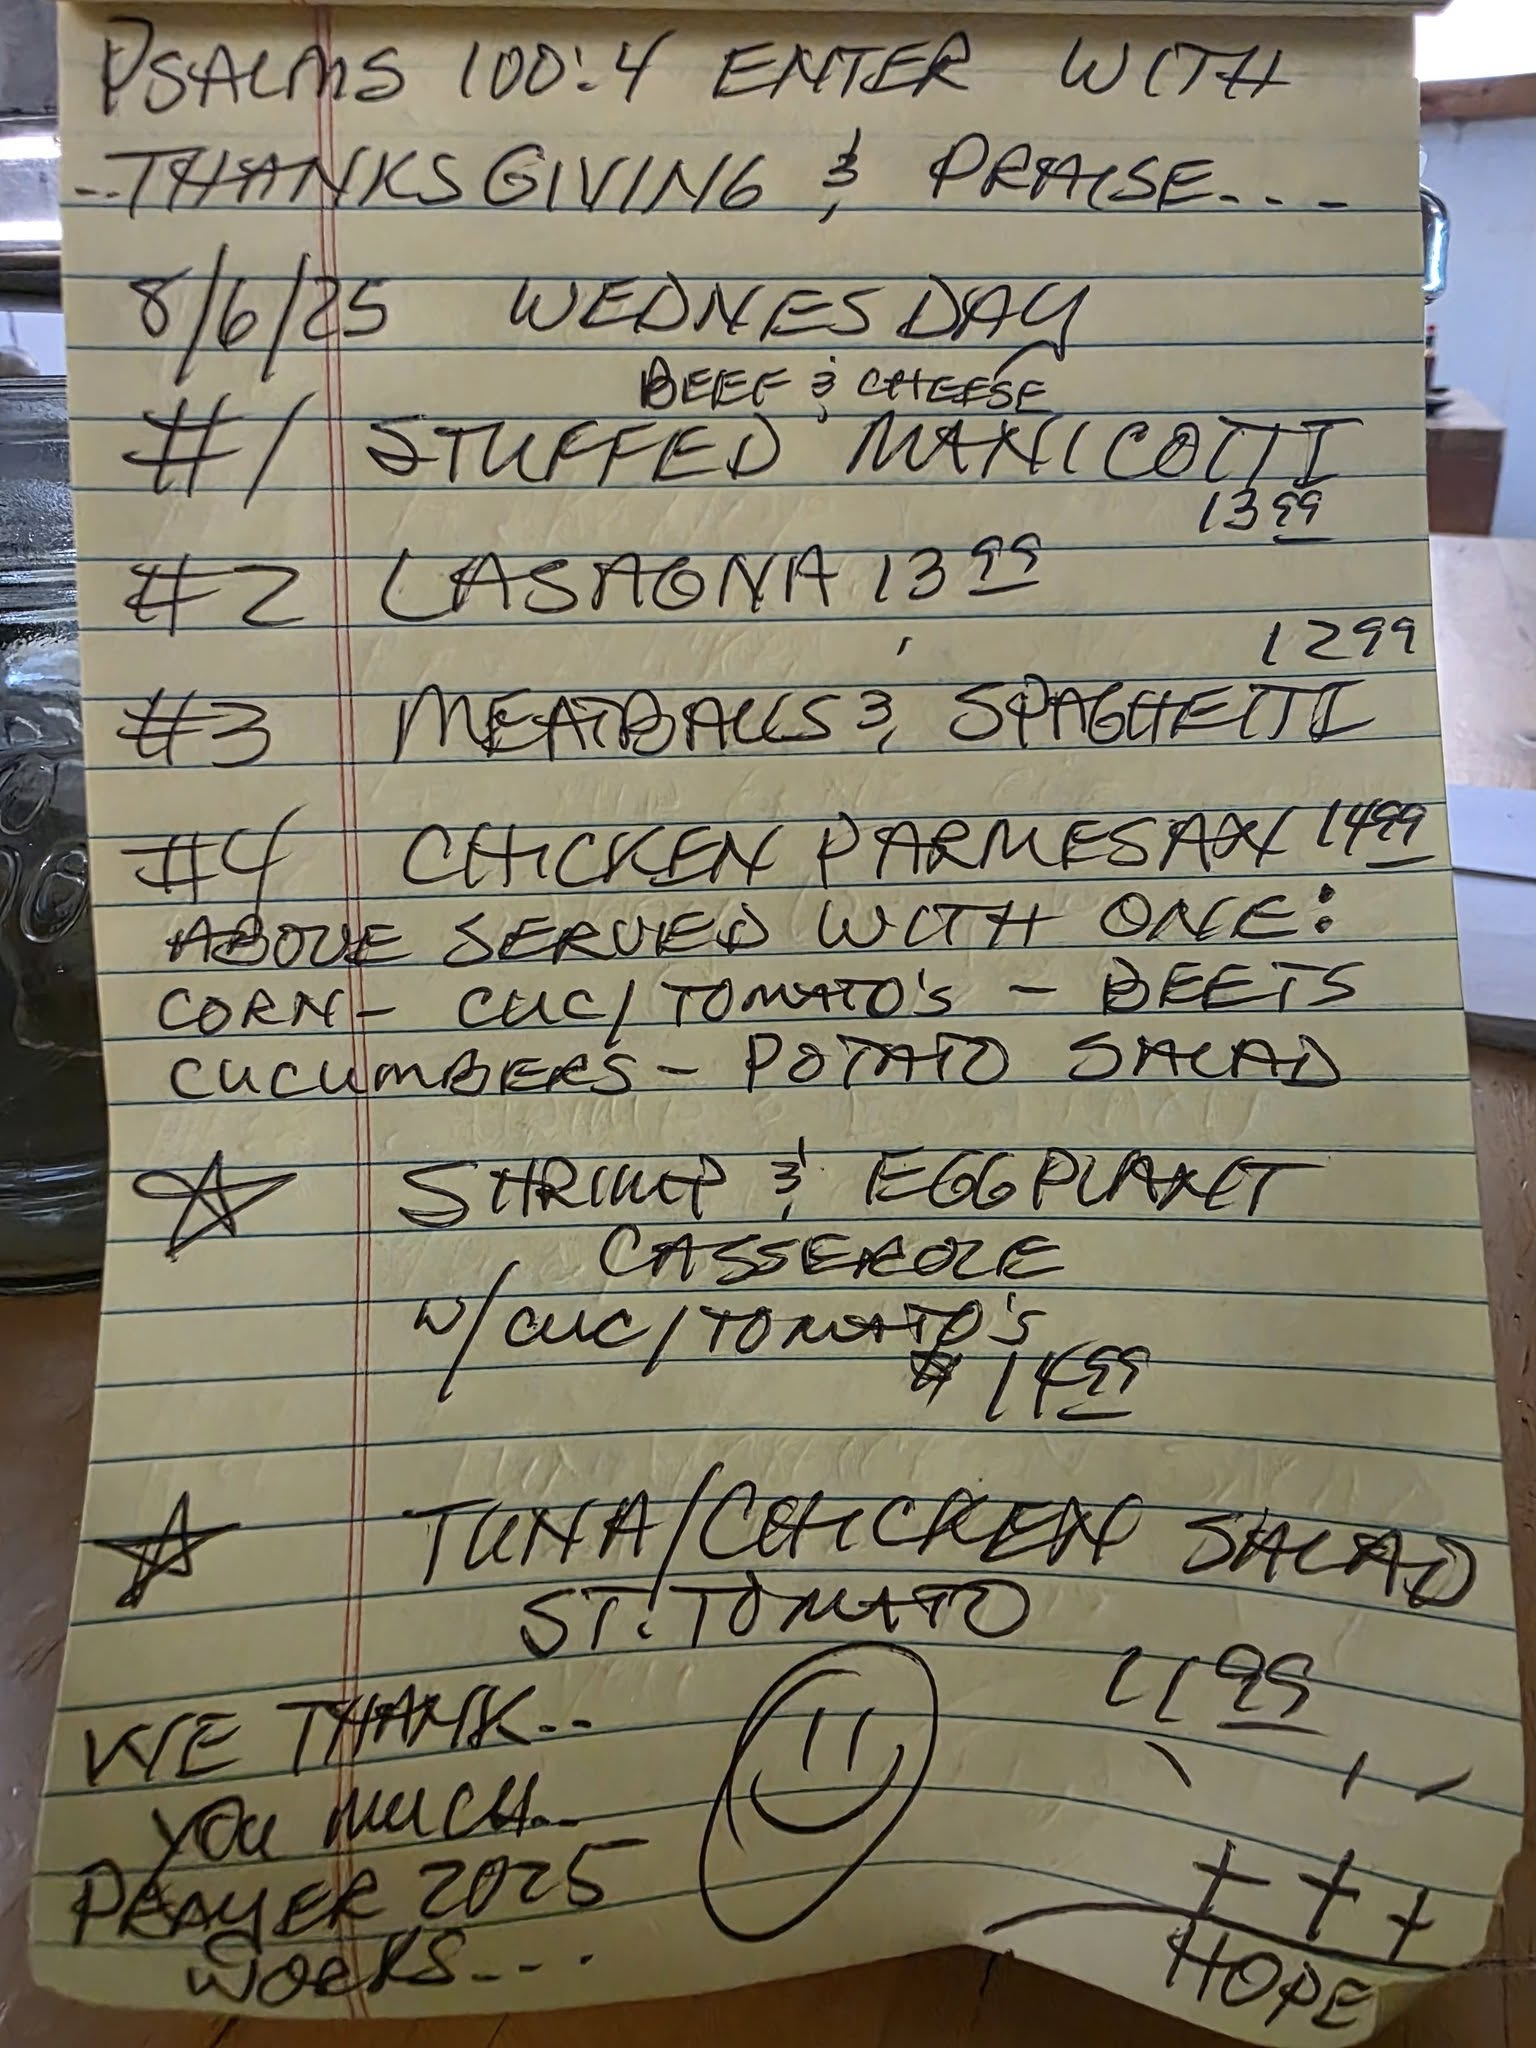 PSALMS 100:4 ENTER WITH
..THANKSGIVING & PRAISE....
8/6/25 WEDNESDAY
BEEF & CHEESE
#1 STUFFED MANICOTTI
13 99
#2 LASAGNA 13 99
12 99
#3 MEATBALLS & SPAGHETTI
#4 CHICKEN PARMESAN 14 99
ABOVE SERVED WITH ONE:
CORN - CUC/TOMATO'S - BEETS
CUCUMBERS - POTATO SALAD
SHRIMP & EGGPLANT
CASSEROLE
W/CUC/TOMATO'S
$14 99
TUNA/CHICKEN SALAD
ST. TOMATO
11 99
WE THANK..
YOU MUCH...
PRAYER 2025
WORKS....
HOPE